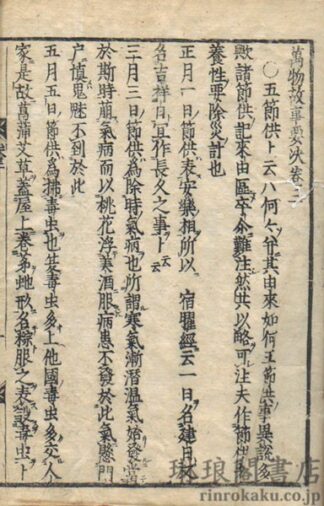 萬物故事要决卷三
○五節供ト云ハ何々ヤ其由来如何王節供事異說多
歟諸節供記来由區卒介難注然共以略可注夫作節供
養性要除災計也
正月一日節供表安樂相所以宿曜經云一日名建月
名吉祥日宜作長久之事ト云云
三月三日節供為除時氣病也所謂寒氣漸潜温氣始發
於斯時萠氣病而以桃花浮美酒服病患不發於此氣慰門
户慎鬼魅不到於此
五月五日節供為拂毒虫也其毒虫多上他國毒虫多交人
家是故菖蒲艾草蓋屋上卷茅虵形名粽服之表毒虫ト
琳琅閣書店
rinrokaku.co.jp